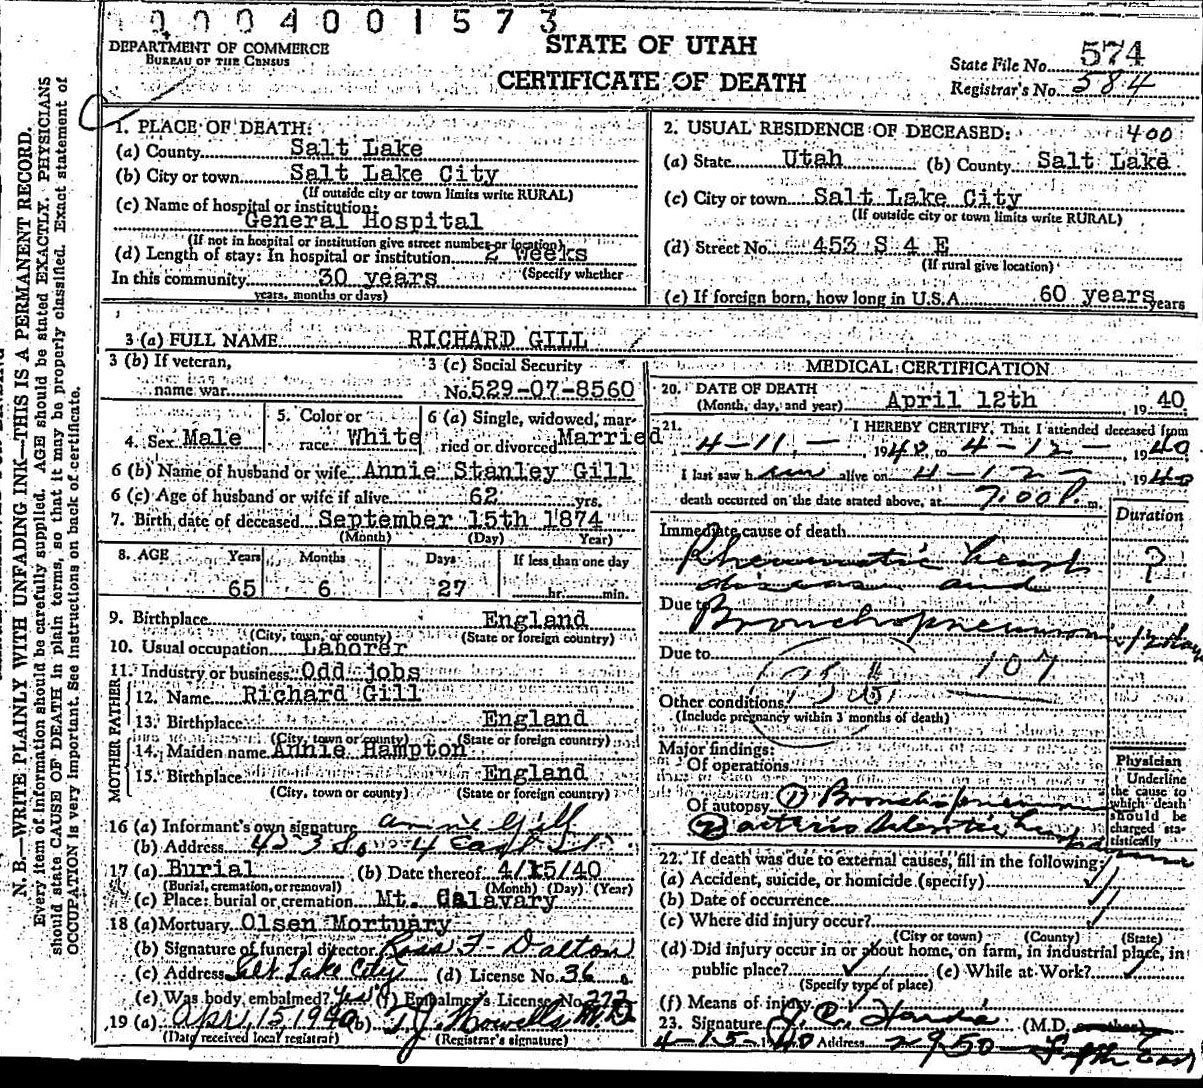 0004001573
DEPARTMENT OF COMMERCE
BUREAU OF THE CENSUS
STATE OF UTAH
CERTIFICATE OF DEATH
State File No. 574
Registrar's No. 584
N. B.—WRITE PLAINLY WITH UNFADING INK—THIS IS A PERMANENT RECORD.
Every item of information should be carefully supplied. AGE should be stated EXACTLY. PHYSICIANS
should state CAUSE OF DEATH in plain terms, so that it may be properly classified. Exact statement of
OCCUPATION is very important. See instructions on back of certificate.
1. PLACE OF DEATH:
(a) County Salt Lake
(b) City or town Salt Lake City
(If outside city or town limits write RURAL)
(c) Name of hospital or institution:
General Hospital
(If not in hospital or institution give street number or location)
(d) Length of stay: In hospital or institution 2 weeks
(Specify whether
In this community 30 years
years, months or days)
2. USUAL RESIDENCE OF DECEASED: 400
(a) State Utah (b) County Salt Lake
(c) City or town Salt Lake City
(If outside city or town limits write RURAL)
(d) Street No. 453 S 4 E
(If rural give location)
(e) If foreign born, how long in U.S.A. 60 years years
3 (a) FULL NAME RICHARD GILL
3 (b) If veteran,
name war
3 (c) Social Security
No. 529-07-8560
4. Sex Male
5. Color or
race White
6 (a) Single, widowed, mar-
ried or divorced Married
6 (b) Name of husband or wife Annie Stanley Gill
6 (c) Age of husband or wife if alive 62 yrs.
7. Birth date of deceased September 15th 1874
(Month) (Day) Year)
8. AGE Years Months Days If less than one day
65 6 27 hr. min.
9. Birthplace England
(City, town, or county) (State or foreign country)
10. Usual occupation Laborer
11. Industry or business Odd jobs
FATHER
12. Name Richard Gill
13. Birthplace England
(City, town or county) (State or foreign country)
MOTHER
14. Maiden name Annie Hampton
15. Birthplace England
(City, town or county) (State or foreign country)
16 (a) Informant's own signature Annie Gill
(b) Address 453 So 4 East St.
17 (a) Burial (b) Date thereof 4/15/40
(Burial, cremation, or removal) (Month) (Day) (Year)
(c) Place: burial or cremation Mt. Calavary
18 (a) Mortuary Olsen Mortuary
(b) Signature of funeral director Ross F. Dalton
(c) Address Salt Lake City (d) License No. 36
(e) Was body embalmed? Yes (f) Embalmer's License No. 272
19 (a) Apr. 15, 1940 (b) T. J. Howells M.D.
(Date received local registrar) (Registrar's signature)
MEDICAL CERTIFICATION
20. DATE OF DEATH
(Month, day, and year) April 12th, 1940.
21. I HEREBY CERTIFY, That I attended deceased from
4-11-, 1940, to 4-12-, 1940
I last saw him alive on 4-12-, 1940
death occurred on the date stated above, at 7:00 P. m.
Duration
Immediate cause of death
Rheumatic heart ?
disease and
Due to
Bronchopneumonia
Due to 107
Other conditions
(Include pregnancy within 3 months of death)
Major findings:
Of operations
Of autopsy (1) Bronchopneumonia
(2)
Physician
Underline
the cause to
which death
should be
charged sta-
tistically
22. If death was due to external causes, fill in the following:
(a) Accident, suicide, or homicide (specify)
(b) Date of occurrence
(c) Where did injury occur?
(City or town) (County) (State)
(d) Did injury occur in or about home, on farm, in industrial place, in
public place? (e) While at Work?
(Specify type of place)
(f) Means of injury
23. Signature (M.D.
4-15-1940 Address 2950